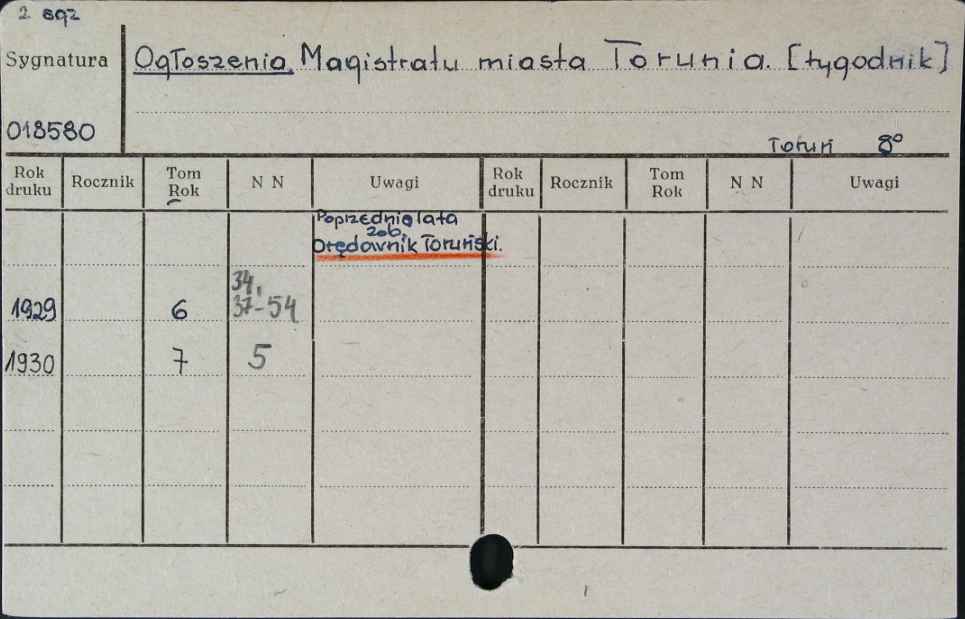 2 egz
Sygnatura
Ogłoszenia Magistratu miasta Torunia. [tygodnik]
018580
Toruń 8°
Rok druku Rocznik Tom Rok N N Uwagi Rok druku Rocznik Tom Rok N N Uwagi
Poprzednie lata
zob.
Orędownik Toruński.
34,
1929 6 37-54
1930 7 5